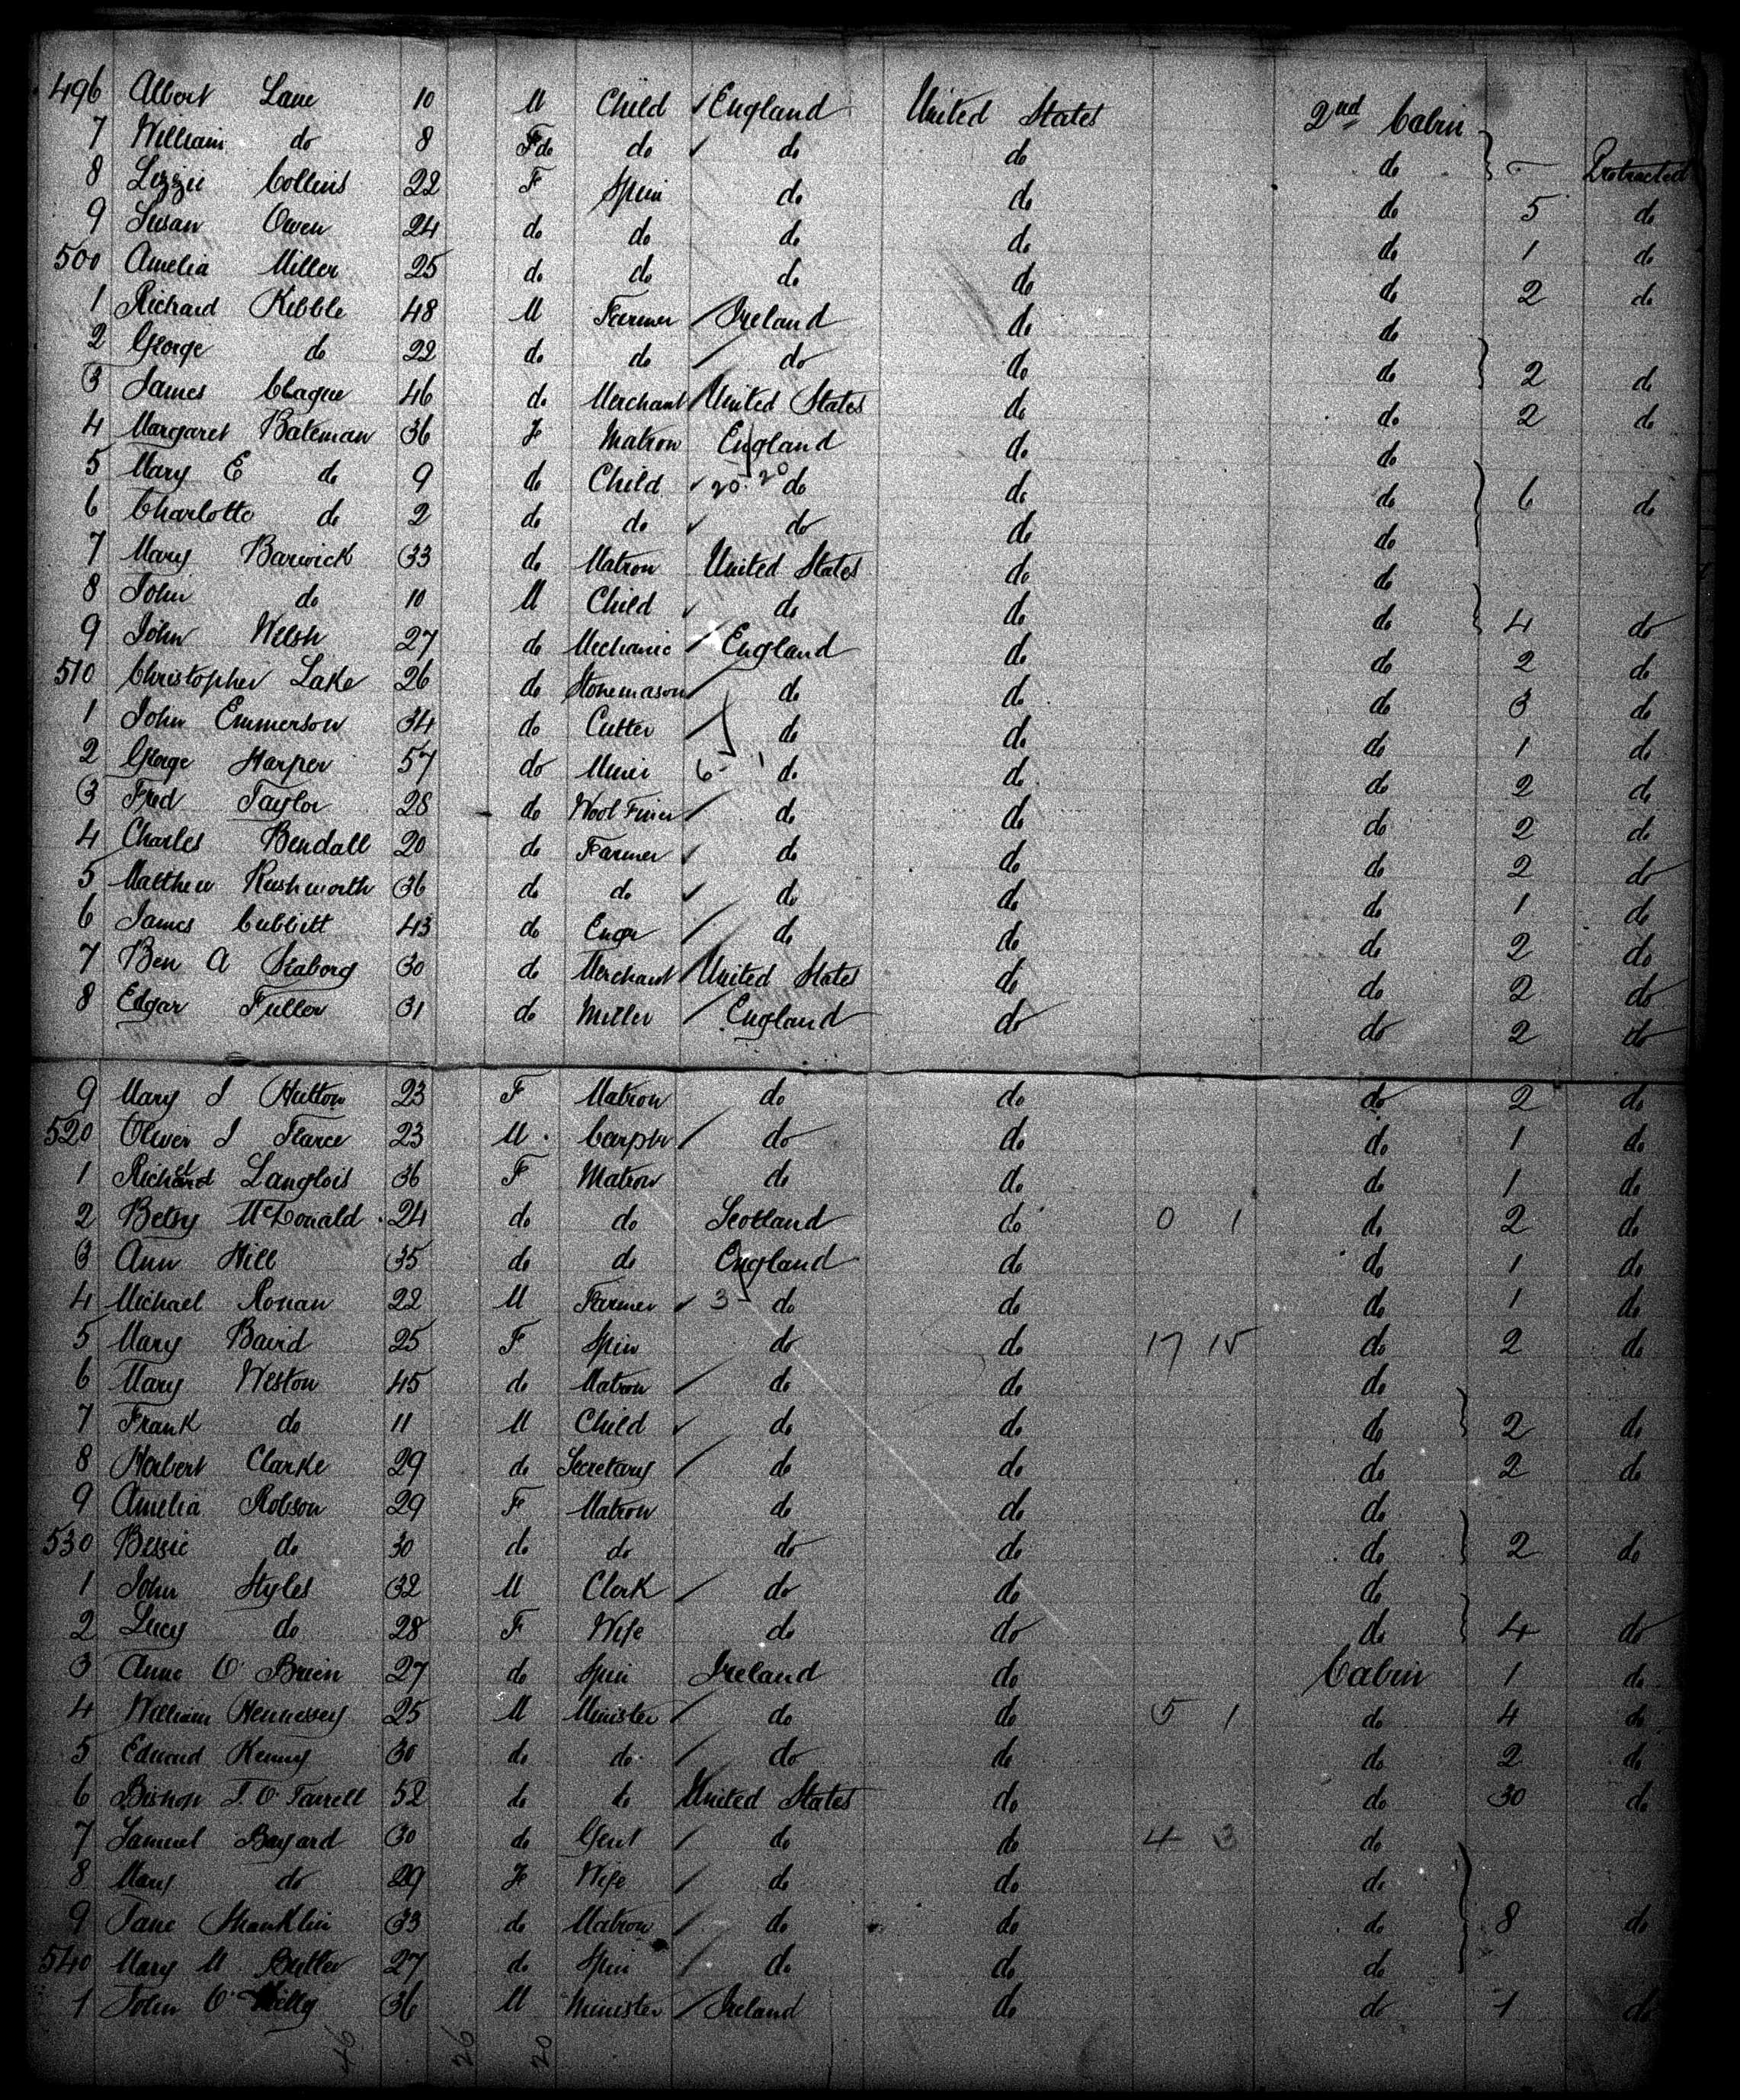 496 Albert Lane 10 M Child England United States 2nd Cabin
7 William do 8 do do do do do Protracted
8 Lizzie Collins 22 F Spin do do do 5 do
9 Susan Owen 24 do do do do do 1 do
500 Amelia Miller 25 do do do do do 2 do
1 Richard Kibble 48 M Farmer Ireland do do
2 George do 22 do do do do do 2 do
3 James Clague 46 do Merchant United States do do 2 do
4 Margaret Bateman 36 F Matron England do do
5 Mary E do 9 do Child 20 20 do do do 6 do
6 Charlotte do 2 do do do do do
7 Mary Barwick 33 do Matron United States do do
8 John do 10 M Child do do do 4 do
9 John Welsh 27 do Mechanic England do do 2 do
510 Christopher Lake 26 do Stonemason do do do 3 do
1 John Emmerson 34 do Cutter do do do 1 do
2 George Harper 57 do Miner 6 1 do do do 2 do
3 Fred Taylor 28 do Wool do do do 2 do
4 Charles Bendall 20 do Farmer do do do 2 do
5 Matthew Rushworth 36 do do do do do 1 do
6 James Cubbitt 43 do Engr do do do 2 do
7 Ben A Seaborg 30 do Merchant United States do do 2 do
8 Edgar Fuller 31 do Miller England do do 2 do
9 Mary J Hutton 23 F Matron do do do 2 do
520 Oliver J 23 M Carpter do do do 1 do
1 Richard Langlois 36 F Matron do do do 1 do
2 Betsy McDonald 24 do do Scotland do 0 1 do 2 do
3 Ann Hill 35 do do England do do 1 do
4 Michael Ronan 22 M Farmer 3 do do do 1 do
5 Mary Baird 25 F Spin do do 17 15 do 2 do
6 Mary Weston 45 do Matron do do do
7 Frank do 11 M Child do do do 2 do
8 Herbert Clarke 29 do Secretary do do do 2 do
9 Amelia Robson 29 F Matron do do do
530 Bessie do 30 do do do do do 2 do
1 John Styles 32 M Clerk do do do
2 Lucy do 28 F Wife do do do 4 do
3 Anne O'Brien 27 do Spin Ireland do Cabin 1 do
4 William Hennessey 25 M Minister do do 5 1 do 4 do
5 Edward Kenny 30 do do do do do 2 do
6 Bishop I. O'Farrell 52 do do United States do do 30 do
7 Samuel Bayard 30 do Gent do do 4 3 do
8 Mary do 29 F Wife do do do
9 Jane Shanklin 33 do Matron do do do 8 do
540 Mary M Butler 27 do Spin do do do
1 John O' 36 M Minister Ireland do do 1 do
46 26 20